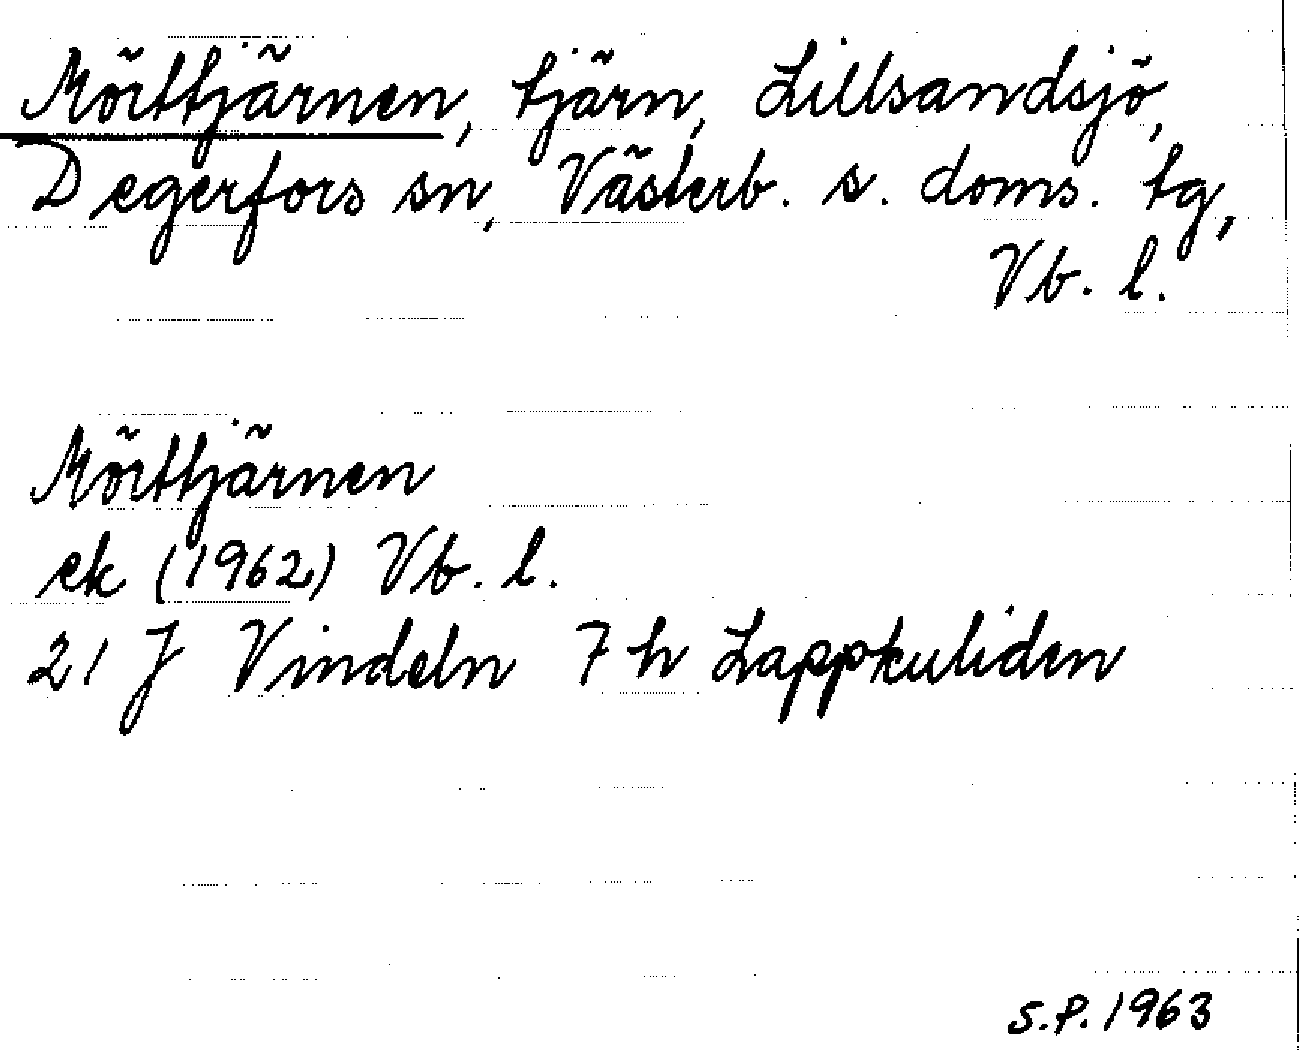 Mörttjärnen, tjärn, Lillsandsjö,
Degerfors sn, Västerb. s. doms. tg,
Vb. l.
Mörttjärnen
ek (1962) Vb. l.
21 J Vindeln 7 h Lappkuliden
S.P. 1963